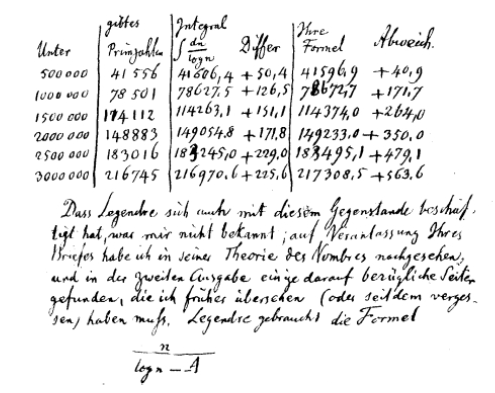 Unter | gibt es Primzahlen | Integral ∫ dn/log n | Differ | Ihre Formel | Abweich.
500000 | 41556 | 41606,4 | +50,4 | 41596,9 | +40,9
1000000 | 78501 | 78627,5 | +126,5 | 78672,7 | +171,7
1500000 | 114112 | 114263,1 | +151,1 | 114374,0 | +264,0
2000000 | 148883 | 149054,8 | +171,8 | 149233,0 | +350,0
2500000 | 183016 | 183245,0 | +229,0 | 183495,1 | +479,1
3000000 | 216745 | 216970,6 | +225,6 | 217308,5 | +563,6
Dass Legendre sich auch mit diesem Gegenstande beschäf-
tigt hat, war mir nicht bekannt; auf Veranlassung Ihres
Briefes habe ich in seiner Theorie des Nombres nachgesehen,
und in der zweiten Ausgabe einige darauf bezügliche Seiten
gefunden, die ich früher übersehen (oder seitdem verges-
sen) haben muß. Legendre gebraucht die Formel
n
log n – A